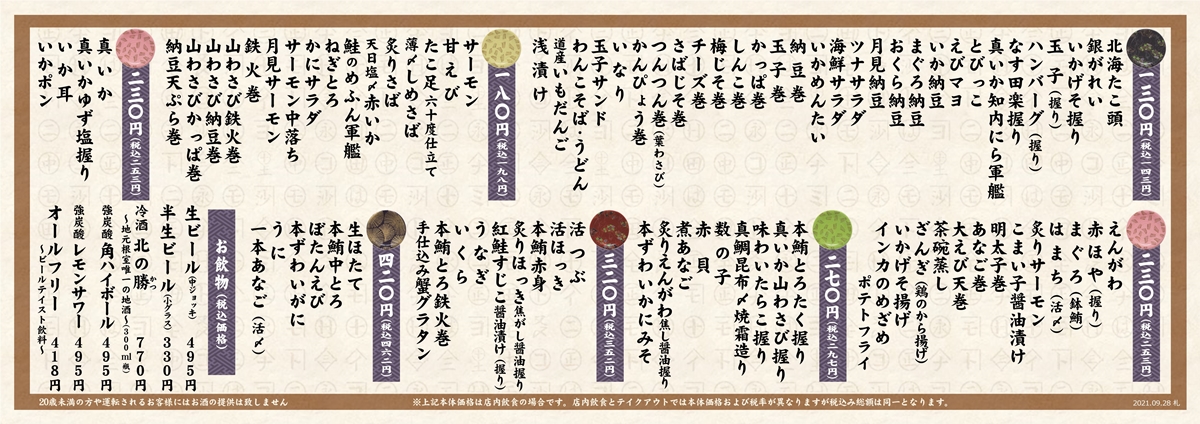 一三〇円(税込一四三円)
北海たこ頭
銀がれい
いかげそ握り
玉子(握り)
ハンバーグ(握り)
なす田楽握り
真いか知内にら軍艦
えびマヨ
とびっこ
いか納豆
まぐろ納豆
おくら納豆
月見納豆
ツナサラダ
海鮮サラダ
いかめんたい
納豆巻
玉子巻
かっぱ巻
しんこ巻
梅じそ巻
チーズ巻
さばじそ巻
つんつん巻(葉わさび)
かんぴょう巻
いなり
玉子サンド
わんこそば・うどん
道産いもだんご
浅漬け
一八〇円(税込一九八円)
サーモン
甘えび
たこ足(六十度仕立て)
薄〆しめさば
炙りさば
天日塩〆赤いか
鮭のめふん軍艦
ねぎとろ
かにサラダ
サーモン中落ち
月見サーモン
鉄火巻
山わさび鉄火巻
山わさび納豆巻
山わさびかっぱ巻
納豆天ぷら巻
二三〇円(税込二五三円)
真いか
真いかゆず塩握り
いか耳
いかポン
二三〇円(税込二五三円)
えんがわ
赤ほや(握り)
まぐろ(鉢鮪)
はまち(活〆)
炙りサーモン
こまい子醤油漬け
明太子巻
あなご巻
大えび天巻
茶碗蒸し
ざんぎ(鶏のから揚げ)
いかげそ揚げ
インカのめざめ
ポテトフライ
二七〇円(税込二九七円)
本鮪とろたく握り
真いか山わさび握り
味わいたらこ握り
真鯛昆布〆焼霜造り
数の子
赤貝
煮あなご
炙りえんがわ焦し醤油握り
本ずわいかにみそ
三二〇円(税込三五二円)
活つぶ
活ほっき
本鮪赤身
炙りほっき焦がし醤油握り
紅鮭すじこ醤油漬け(握り)
うなぎ
いくら
本鮪とろ鉄火巻
手仕込み蟹グラタン
四二〇円(税込四六二円)
生ほたて
本鮪中とろ
ぼたんえび
本ずわいがに
うに
一本あなご(活〆)
お飲物(税込価格)
生ビール(中ジョッキ) 495円
半生ビール(小グラス) 330円
冷酒 北の勝 770円
かつ
〜地元根室唯一の地酒〜(300ml瓶)
強炭酸 角ハイボール 495円
強炭酸 レモンサワー 495円
オールフリー 418円
〜ビールテイスト飲料〜
20歳未満の方や運転されるお客様にはお酒の提供は致しません
※上記本体価格は店内飲食の場合です。店内飲食とテイクアウトでは本体価格および税率が異なりますが税込み総額は同一となります。
2021.09.28 札